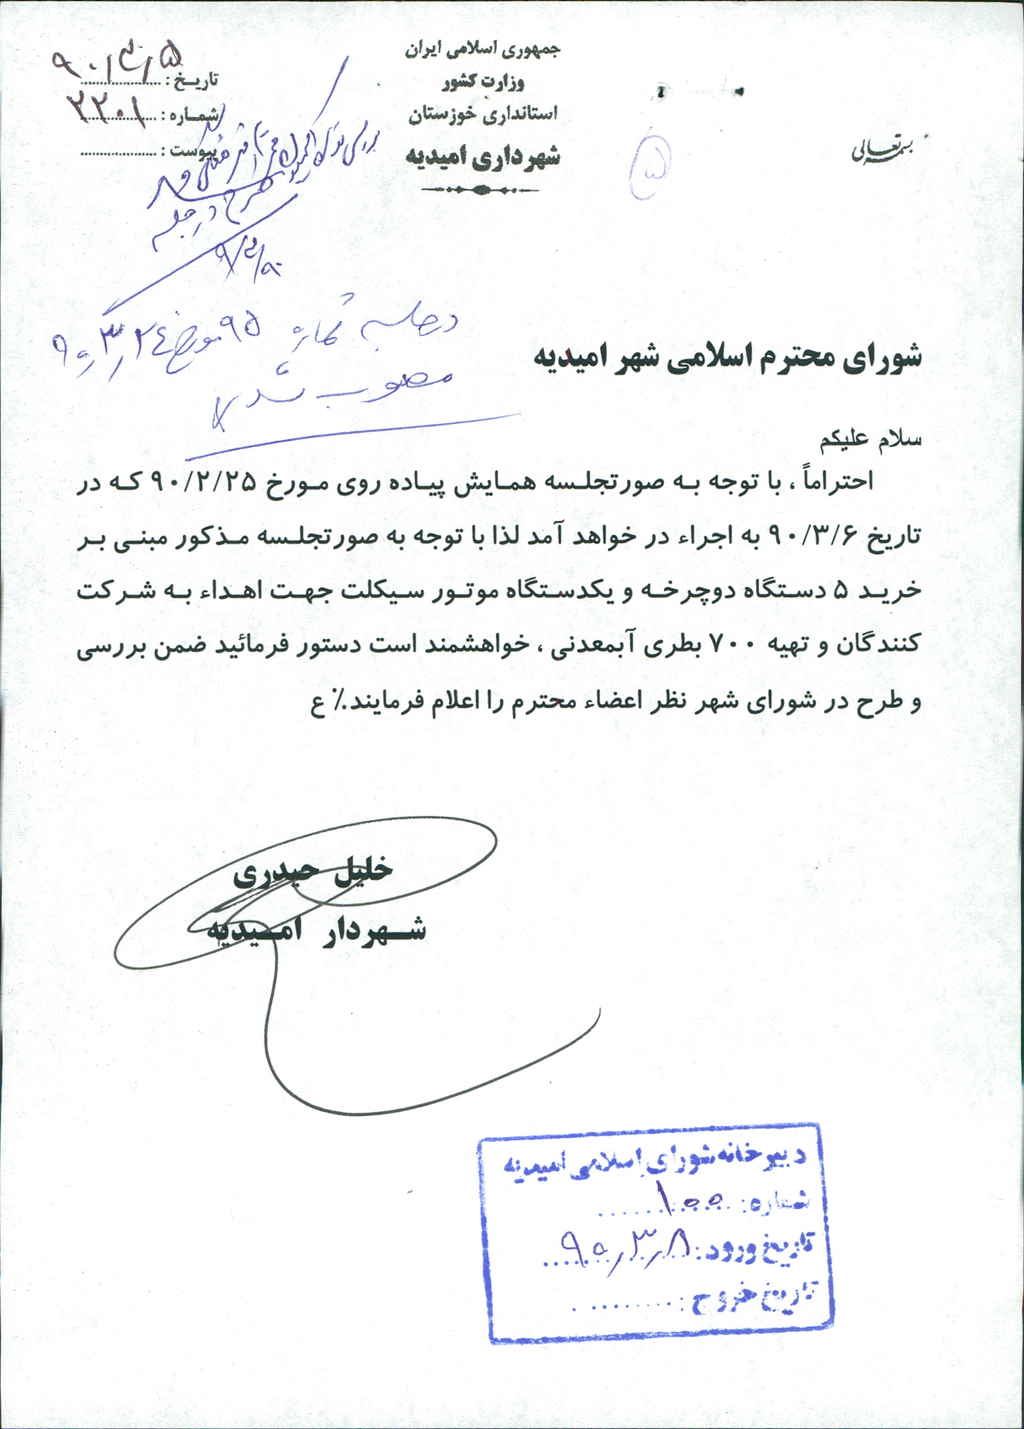 بسمه تعالی
جمهوری اسلامی ایران
وزارت کشور
استانداری خوزستان
شهرداری امیدیه
تاریخ : ۹۰/۳/۵
شماره : ۲۲۰۱
پیوست :
۵
طرح در جلسه
در جلسه شماره ۹۵ مورخ ۹۰/۳/۲۴
مصوب شد
شورای محترم اسلامی شهر امیدیه
سلام علیکم
احتراماً ، با توجه به صورتجلسه همایش پیاده روی مورخ ۹۰/۲/۲۵ که در
تاریخ ۹۰/۳/۶ به اجراء در خواهد آمد لذا با توجه به صورتجلسه مذکور مبنی بر
خرید ۵ دستگاه دوچرخه و یکدستگاه موتور سیکلت جهت اهداء به شرکت
کنندگان و تهیه ۷۰۰ بطری آبمعدنی ، خواهشمند است دستور فرمائید ضمن بررسی
و طرح در شورای شهر نظر اعضاء محترم را اعلام فرمایند.٪ ع
خلیل حیدری
شهردار امیدیه
دبیرخانه شورای اسلامی امیدیه
شماره: ۱۰۰
تاریخ ورود: ۹۰/۳/۸
تاریخ خروج :